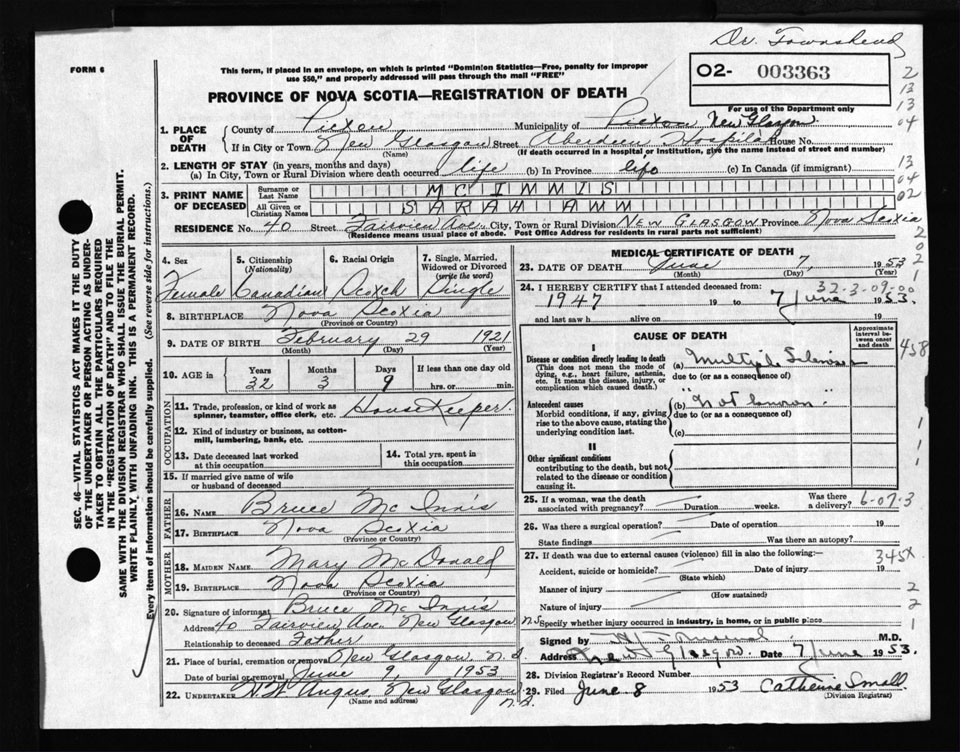 Dr. Townshend
FORM 6
This form, if placed in an envelope, on which is printed "Dominion Statistics—Free, penalty for improper use $50," and properly addressed will pass through the mail "FREE"
02- 003363
PROVINCE OF NOVA SCOTIA—REGISTRATION OF DEATH
For use of the Department only
1. PLACE OF DEATH
County of Pictou Municipality of Pictou New Glasgow
If in City or Town New Glasgow Street Aberdeen Hospital House No.
(Name) (If death occurred in a hospital or institution, give the name instead of street and number)
2. LENGTH OF STAY (in years, months and days)
(a) In City, Town or Rural Division where death occurred life (b) In Province life (c) In Canada (if immigrant)
3. PRINT NAME OF DECEASED
Surname or Last Name MC INNIS
All Given or Christian Names SARAH ANN
RESIDENCE No. 40 Street Fairview Ave. City, Town or Rural Division NEW GLASGOW Province Nova Scotia
(Residence means usual place of abode. Post Office Address for residents in rural parts not sufficient)
4. Sex Female
5. Citizenship (Nationality) Canadian
6. Racial Origin Scotch
7. Single, Married, Widowed or Divorced (write the word) Single
8. BIRTHPLACE Nova Scotia
(Province or Country)
9. DATE OF BIRTH February 29 1921
(Month) (Day) (Year)
10. AGE in Years 32 Months 3 Days 9 If less than one day
hrs. or min.
OCCUPATION
11. Trade, profession, or kind of work as spinner, teamster, office clerk, etc. HouseKeeper
12. Kind of industry or business, as cotton-mill, lumbering, bank, etc.
13. Date deceased last worked at this occupation
14. Total yrs. spent in this occupation
15. If married give name of wife or husband of deceased
FATHER
16. NAME Bruce Mc Innis
17. BIRTHPLACE Nova Scotia
(Province or Country)
MOTHER
18. MAIDEN NAME Mary McDonald
19. BIRTHPLACE Nova Scotia
(Province or Country)
20. Signature of informant Bruce Mc Innis
Address 40 Fairview Ave. New Glasgow N.S
Relationship to deceased Father
21. Place of burial, cremation or removal New Glasgow, N.S
Date of burial or removal June 9, 1953
22. UNDERTAKER Angus, New Glasgow N.S.
(Name and address)
MEDICAL CERTIFICATE OF DEATH
23. DATE OF DEATH June 7, 1953
(Month) (Day) (Year)
32-3-09-00
24. I HEREBY CERTIFY that I attended deceased from:
1947 19 to 7 June 1953.
and last saw h alive on 19
CAUSE OF DEATH
Approximate interval between onset and death
I
Disease or condition directly leading to death (a) Multiple Sclerosis
(This does not mean the mode of dying, e.g., heart failure, asthenia, etc. It means the disease, injury, or complication which caused death.)
due to (or as a consequence of)
Antecedent causes (b) "Not known."
Morbid conditions, if any, giving rise to the above cause, stating the underlying condition last.
due to (or as a consequence of)
(c)
II
Other significant conditions
contributing to the death, but not related to the disease or condition causing it.
25. If a woman, was the death associated with pregnancy? Duration weeks. Was there a delivery? 6-07-3
26. Was there a surgical operation? Date of operation 19
State findings Was there an autopsy?
27. If death was due to external causes (violence) fill in also the following:— 345X
Accident, suicide or homicide? Date of injury 19
(State which)
Manner of injury
(How sustained)
Nature of injury
Specify whether injury occurred in industry, in home, or in public place
Signed by M.D.
Address New Glasgow Date 7 June 1953.
28. Division Registrar's Record Number
29. Filed June 8 1953 Catherine Small
(Division Registrar)
SEC. 46—VITAL STATISTICS ACT MAKES IT THE DUTY OF THE UNDERTAKER OR PERSON ACTING AS UNDERTAKER TO OBTAIN ALL THE PARTICULARS REQUIRED IN THE "REGISTRATION OF DEATH" AND TO FILE THE SAME WITH THE DIVISION REGISTRAR WHO SHALL ISSUE THE BURIAL PERMIT.
WRITE PLAINLY, WITH UNFADING INK. THIS IS A PERMANENT RECORD.
Every item of information should be carefully supplied. (See reverse side for instructions.)
2
13
13
04
13
04
02
2
0
2
1
458
1
1
1
2
2
1